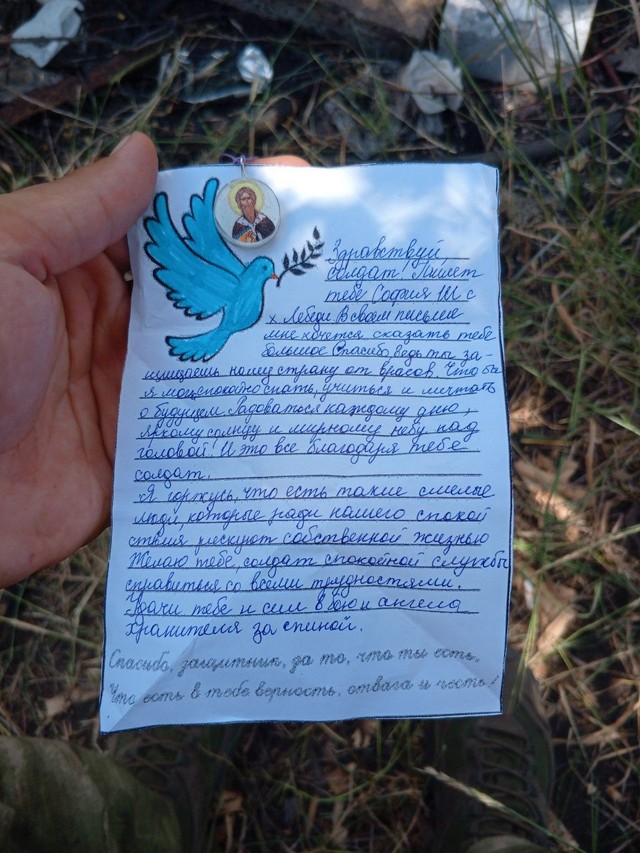 Здравствуй,
солдат! Пишет
тебе София Ш с
х Лебеди. В своём письме
мне хочется сказать тебе
большое Спасибо, ведь ты за-
щищаешь нашу страну от врагов. Что бы
я мог спокойно спать, учиться и мечтать
о будущем. Радоваться каждому дню,
яркому солнцу и мирному небу над
головой! И это все благодаря тебе
солдат.
Я горжусь, что есть такие смелые
люди, которые ради нашего спокой
ствия рискуют собственной жизнью
Желаю тебе, солдат спокойной службы
справиться со всеми трудностями.
Удачи тебе и сил в бою и ангела
Хранителя за спиной.
Спасибо, защитник, за то, что ты есть,
Что есть в тебе верность, отвага и честь!